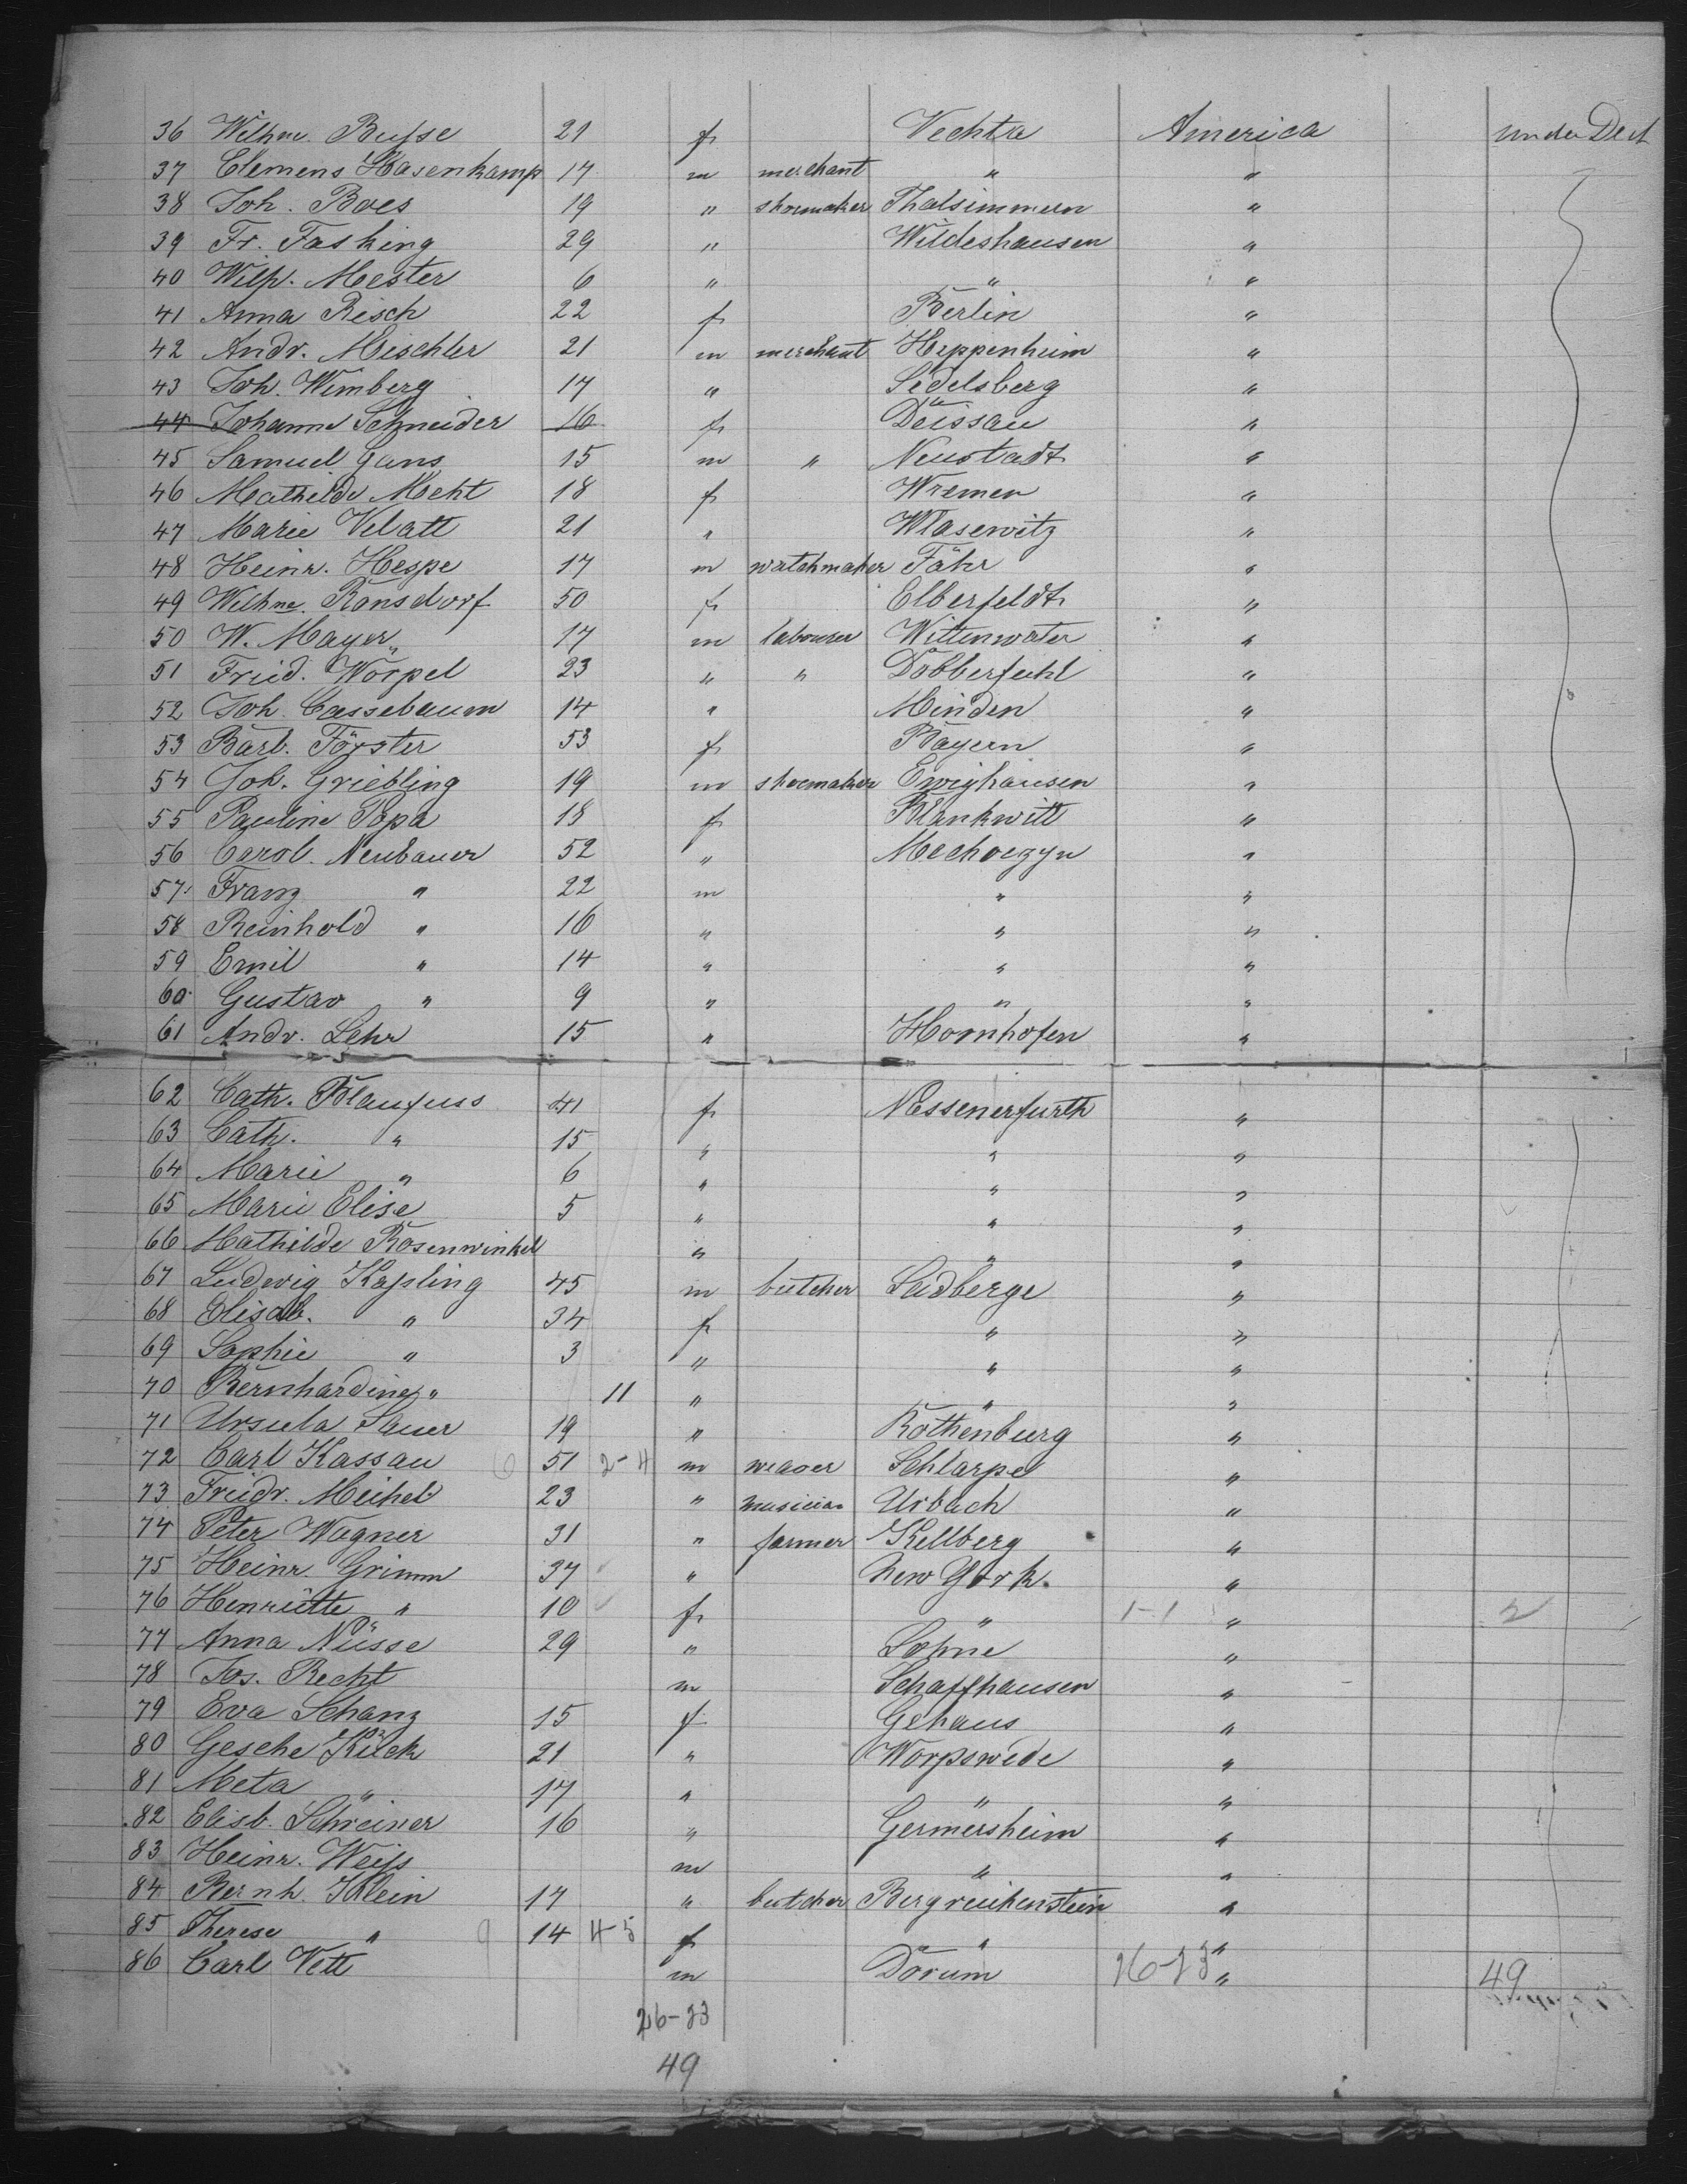 36 Wilhne. Busse 21 f Vechta America under Deck
37 Clemens Hasenkamp 17 m merchant " "
38 Joh. Boes 19 " shoemaker Thalsimmern "
39 Fr. Fasking 29 " Wildeshausen "
40 Wilh. Mester 6 " " "
41 Anna Risch 22 f Berlin "
42 Andr. Mischler 21 m merchant Heppenheim "
43 Joh. Wimberg 17 " Sedelsberg "
44 Johanne Schneider 16 f Deissau "
45 Samuel Gans 15 m " Neustadt "
46 Mathilde Meht 18 f Wremen "
47 Marie Velatt 21 " Wlasewitz "
48 Heinr. Hespe 17 m watchmaker Fähr "
49 Wilhne. Ronsdorf 50 f Elberfeldt "
50 W. Mayer 17 m labourer Wittenwater "
51 Fried. Worpel 23 " " Dobberfuhl "
52 Joh. Cassebaum 14 " Minden "
53 Barb. Förster 53 f Bayern "
54 Joh. Griebling 19 m shoemaker Ewighausen "
55 Pauline Papa 18 f Blankwitt "
56 Carol. Neubauer 52 " Mechoczyn "
57 Franz " 22 m " "
58 Reinhold " 16 " " "
59 Emil " 14 " " "
60 Gustav " 9 " " "
61 Andr. Lehr 15 " Hornhofen "
62 Cath. Blaufuss 41 f Nessenerfurth "
63 Cath. " 15 " " "
64 Marie " 6 " " "
65 Marie Elise 5 " " "
66 Mathilde Rosenwinkel " " "
67 Ludewig Kapling 45 m butcher Ludberge "
68 Elisab. " 34 f " "
69 Sophie " 3 " " "
70 Bernhardine " 11 " " "
71 Ursula Sauer 19 " Rothenburg "
72 Carl Kassau 6 51 2-4 m weaver Schlarpe "
73 Friedr. Meihel 23 " musician Urbach "
74 Peter Wagner 31 " farmer Kellberg "
75 Heinr. Grimm 37 " New York. "
76 Henriette " 10 f " 1-1 " 2
77 Anna Nüsse 29 " Lohne "
78 Jos. Recht m Schaffhausen "
79 Eva Schanz 15 f Gehaus "
80 Gesche Kück 21 " Worpswede "
81 Meta " 17 " " "
82 Elisb. Schreiner 16 " Germersheim "
83 Heinr. Weiss m " "
84 Bernh. Klein 17 " butcher Bergreichenstein "
85 Therese " 9 14 4-5 f " "
86 Carl Vett m Dorum 26-23 " 49
26-23
49